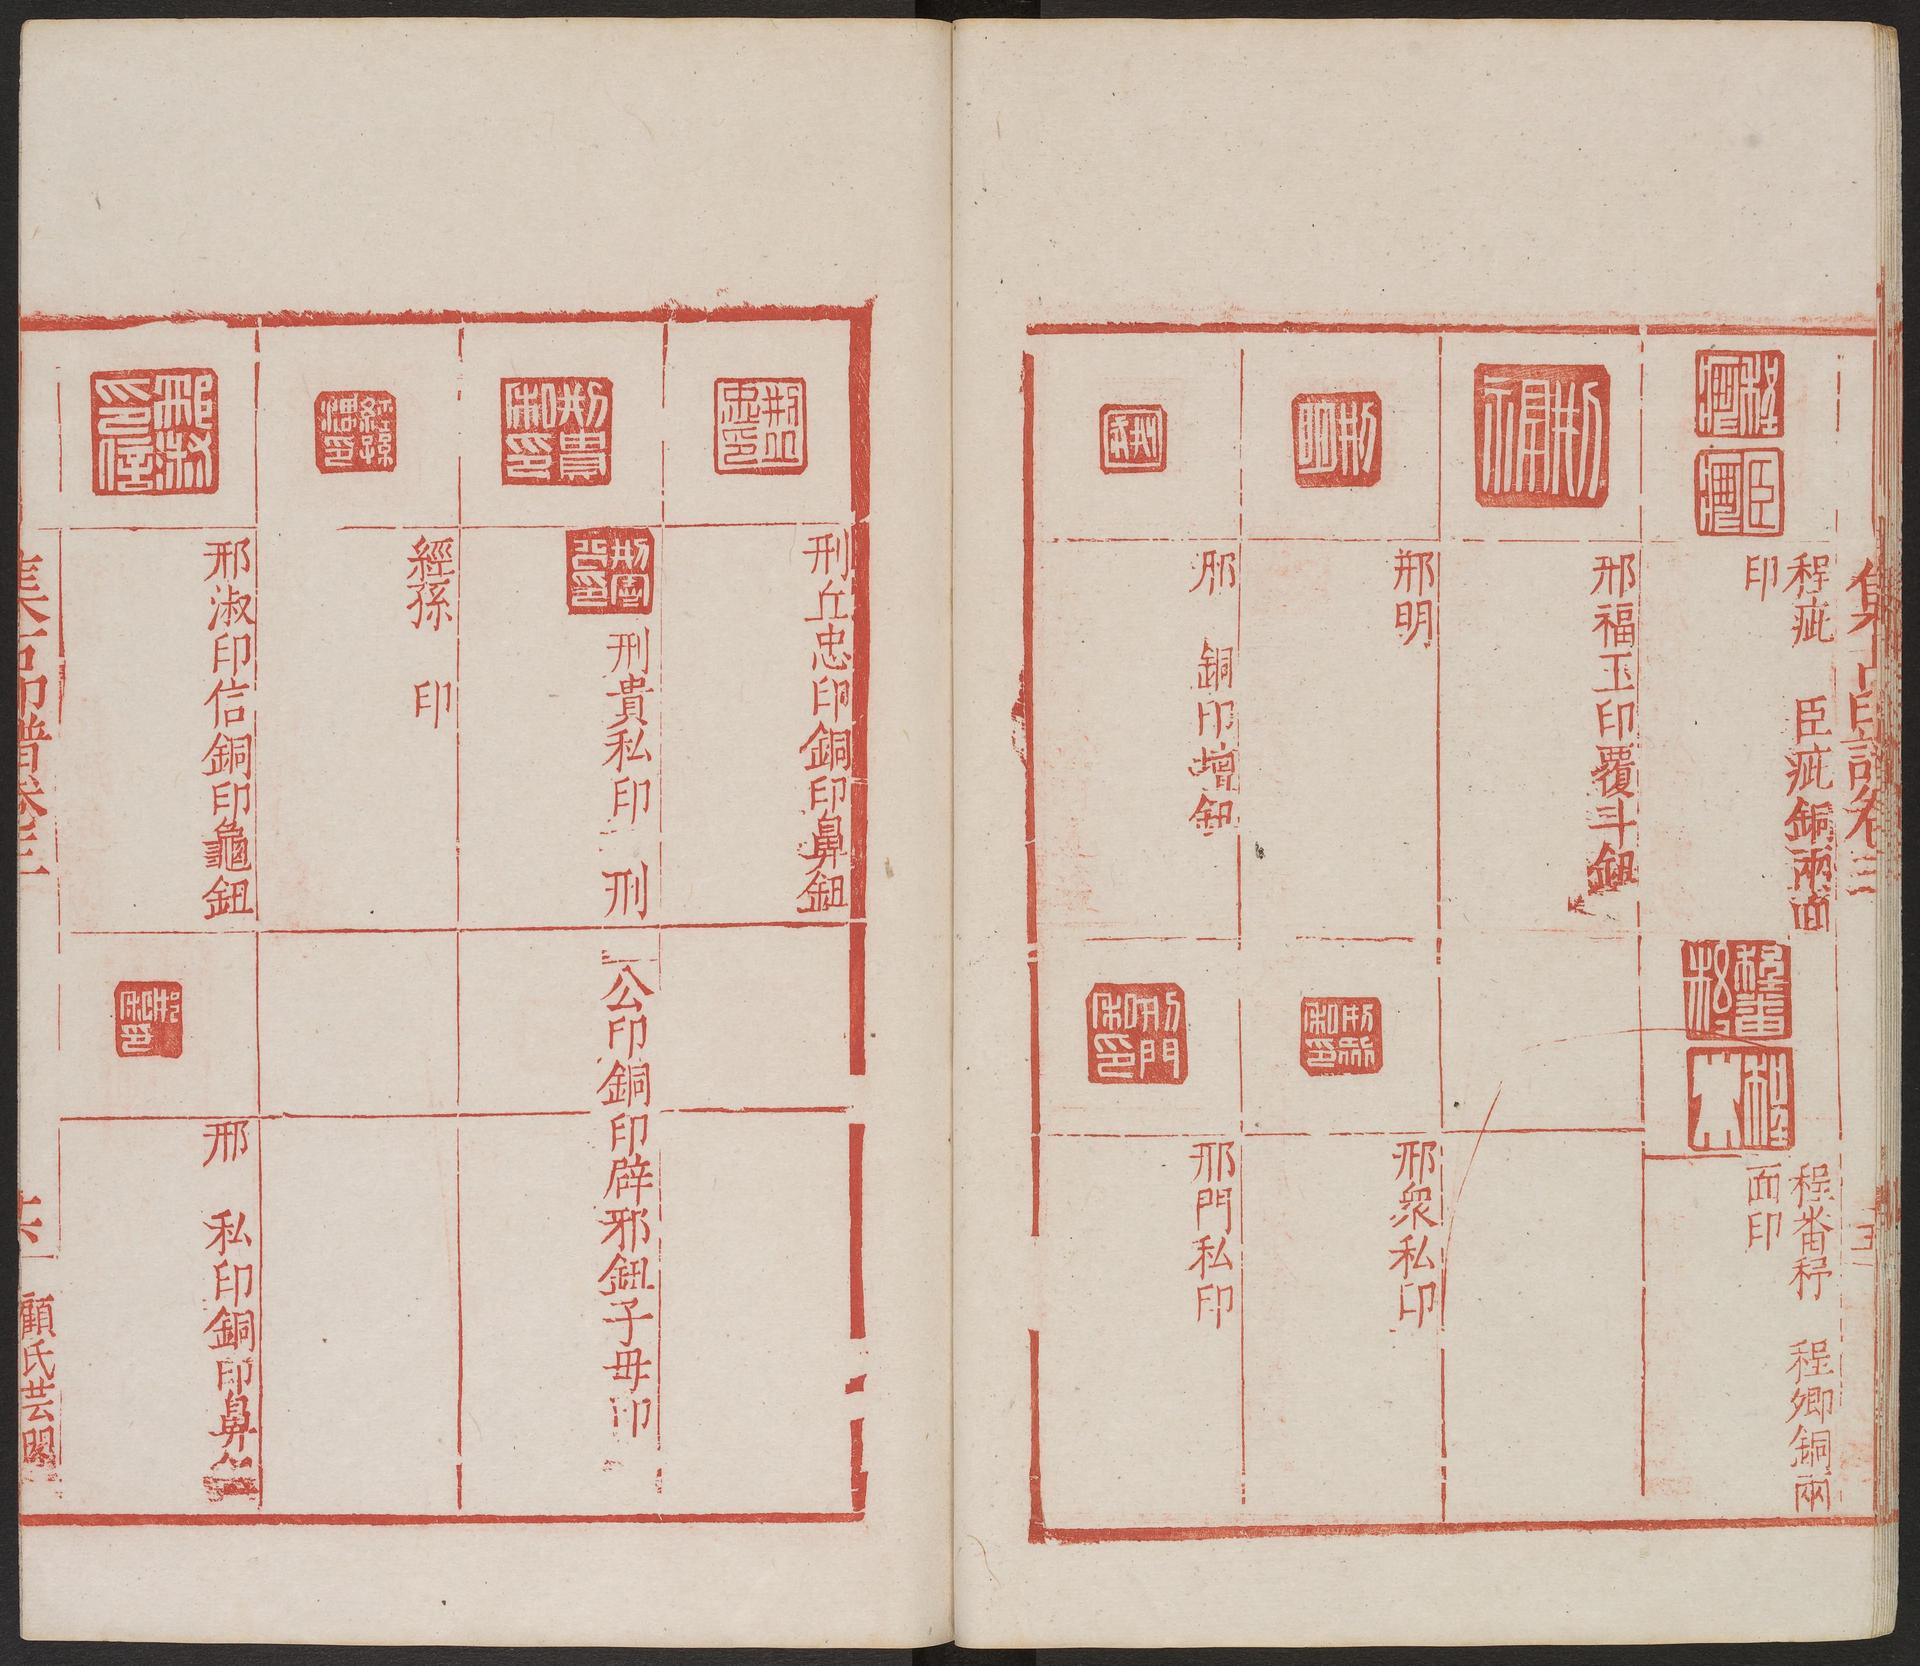 程疵　臣疵銅兩面
印
程番
程卿銅兩
面印
邢福玉印覆斗鈕
邢明
邢衆私印
邢　銅印壇鈕
邢門私印
刑丘忠印銅印鼻鈕
刑貴私印　刑
公印銅印辟邪鈕子母印
經孫　印
邢淑印信銅印龜鈕
邢　私印銅印鼻
集古印譜卷三
顧氏芸閣